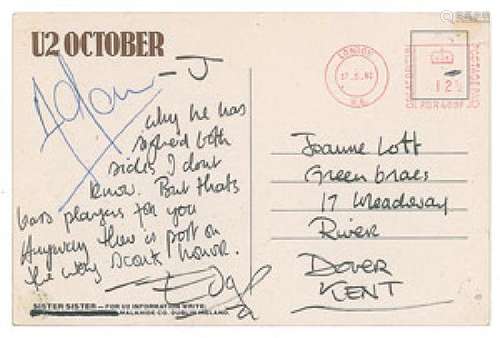 U2 OCTOBER
Adam - J
why he has
signed both
sides I dont
know. But thats
bass players for you
Anyway there is post on
the way scout honor.
Edge
SISTER SISTER — FOR U2 INFORMATION WRITE:
MALAHIDE CO. DUBLIN IRELAND.
LONDON
Joanne Lott
Greenbraes
17 Meadway
River
Dover
KENT